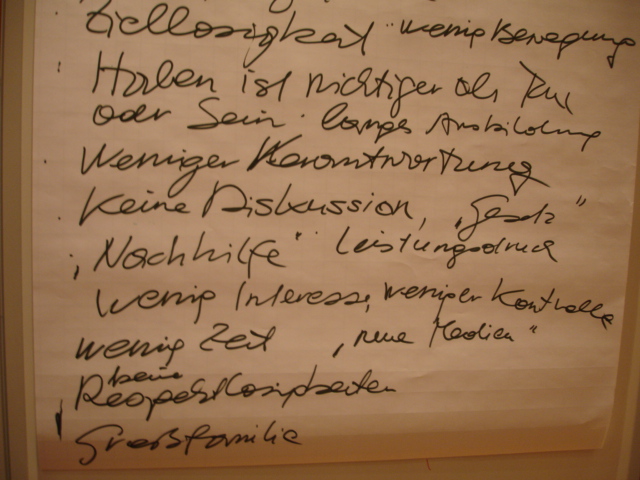 Ziellosigkeit wenig Bewegung
Haben ist wichtiger als Tun
oder Sein lange Ausbildung
Weniger Verantwortung
Keine Diskussion, „Gesetz"
„Nachhilfe" Leistungsdruck
wenig Interesse, weniger Kontrolle
wenig Zeit „neue Medien"
keine
Respektlosigkeiten
Großfamilie